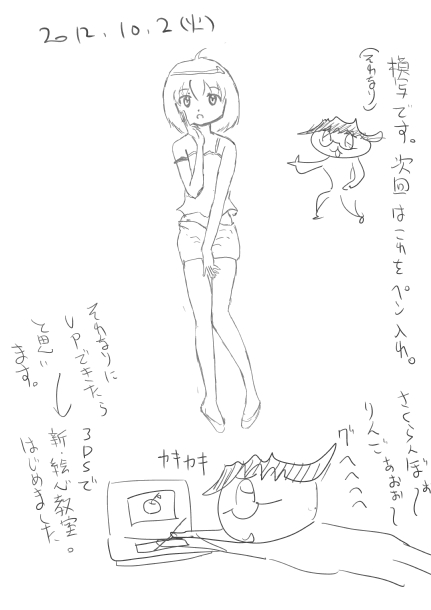 2012.10.2(火)
模写です。次回はこれをペン入れ。
(それなり)
それなりに
UPできたら
と思い
ます。
3DSで
新・絵心教室。
はじめました
カキカキ
さくらんぼぉ〜
りんごぉおぉ〜
グヘヘヘヘ